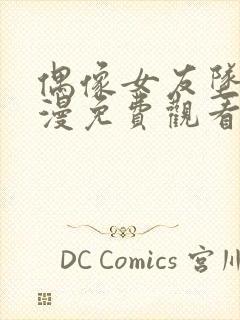 偶像女友墜
漫免費觀看
DC Comics 宮川